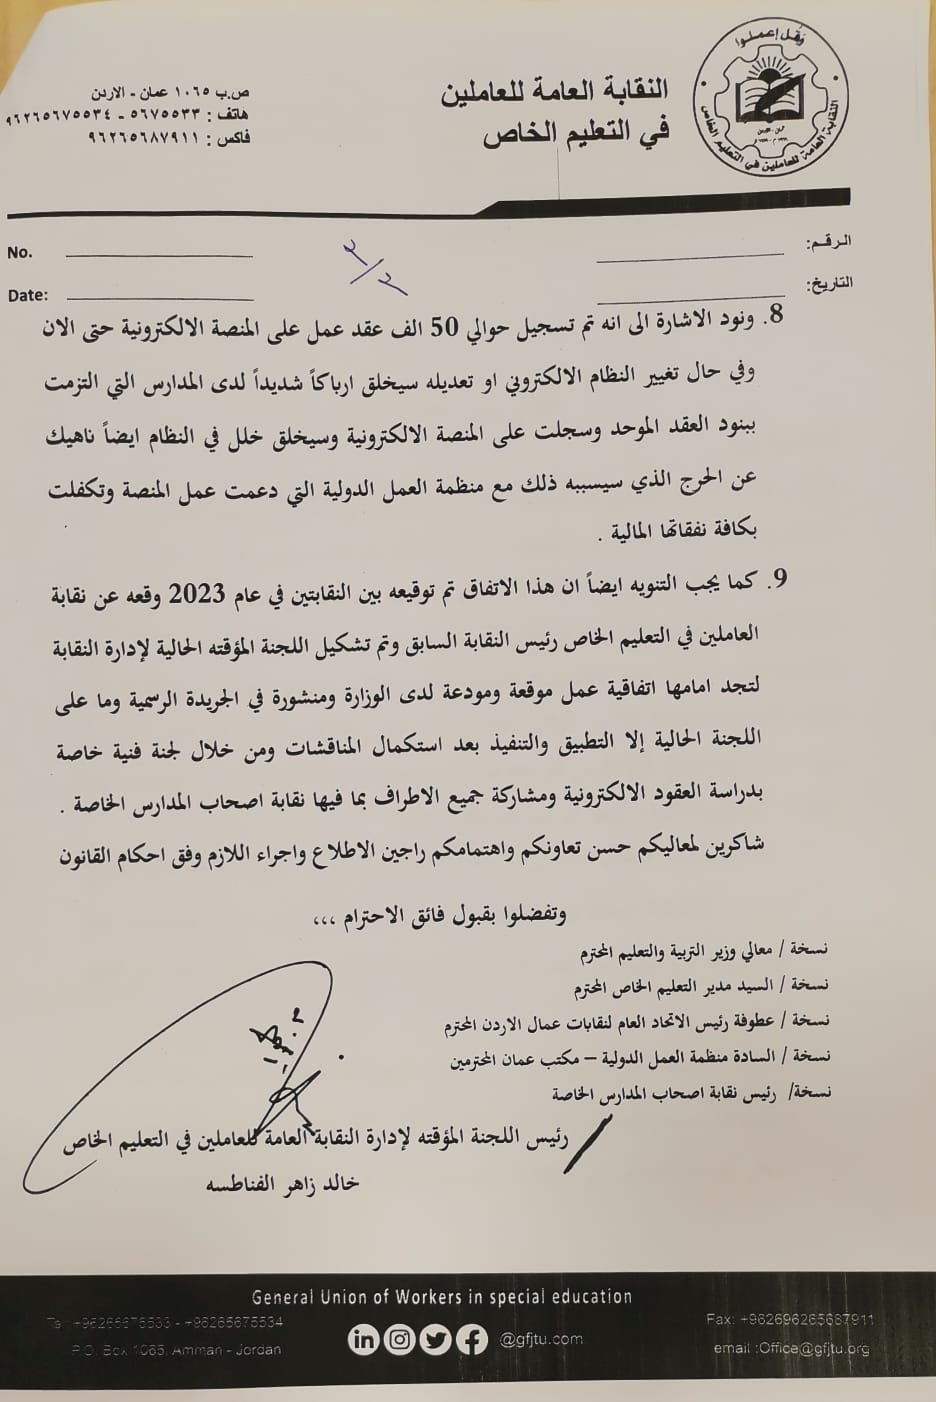 وقل إعملوا
النقابة العامة للعاملين في التعليم الخاص
النقابة العامة للعاملين
في التعليم الخاص
ص.ب ١٠٦٥ عمان - الاردن
هاتف : ٥٦٧٥٥٣٣ - ٩٦٢٦٥٦٧٥٥٣٤
فاكس : ٩٦٢٦٥٦٨٧٩١١
الرقم:
No.
التاريخ:
Date:
8. ونود الاشارة الى انه تم تسجيل حوالي 50 الف عقد عمل على المنصة الالكترونية حتى الان
وفي حال تغيير النظام الالكتروني او تعديله سيخلق ارباكاً شديداً لدى المدارس التي التزمت
ببنود العقد الموحد وسجلت على المنصة الالكترونية وسيخلق خلل في النظام ايضاً ناهيك
عن الحرج الذي سيسببه ذلك مع منظمة العمل الدولية التي دعمت عمل المنصة وتكفلت
بكافة نفقاتها المالية .
9. كما يجب التنويه ايضاً ان هذا الاتفاق تم توقيعه بين النقابتين في عام 2023 وقعه عن نقابة
العاملين في التعليم الخاص رئيس النقابة السابق وتم تشكيل اللجنة المؤقته الحالية لإدارة النقابة
لتجد امامها اتفاقية عمل موقعة ومودعة لدى الوزارة ومنشورة في الجريدة الرسمية وما على
اللجنة الحالية إلا التطبيق والتنفيذ بعد استكمال المناقشات ومن خلال لجنة فنية خاصة
بدراسة العقود الالكترونية ومشاركة جميع الاطراف بما فيها نقابة اصحاب المدارس الخاصة .
شاكرين لمعاليكم حسن تعاونكم واهتمامكم راجين الاطلاع واجراء اللازم وفق احكام القانون
وتفضلوا بقبول فائق الاحترام ،،،
نسخة / معالي وزير التربية والتعليم المحترم
نسخة / السيد مدير التعليم الخاص المحترم
نسخة / عطوفة رئيس الاتحاد العام لنقابات عمال الاردن المحترم
نسخة / السادة منظمة العمل الدولية – مكتب عمان المحترمين
نسخة/ رئيس نقابة اصحاب المدارس الخاصة
رئيس اللجنة المؤقته لإدارة النقابة العامة للعاملين في التعليم الخاص
خالد زاهر الفناطسه
General Union of Workers in special education
Tel: +96265675533 - +96265675534
P.O. Box 1065, Amman - Jordan
@gfjtu.com
Fax: +962696265687911
email :Office@gfjtu.org